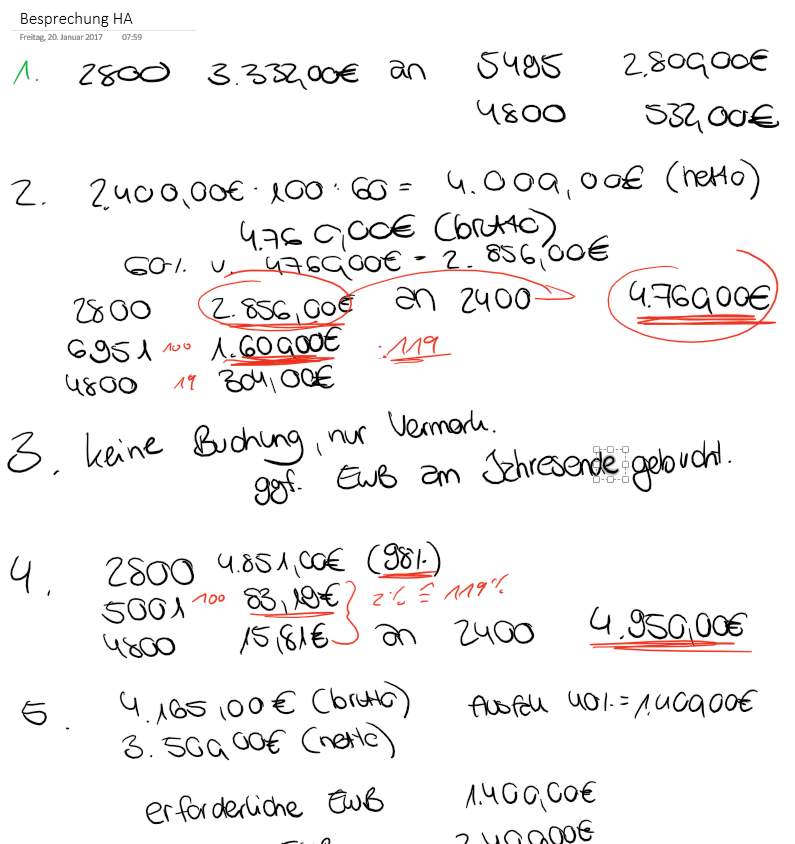 Besprechung HA
Freitag, 20. Januar 2017 07:59
1. 2800 3.332,00€ an 5495 2.800,00€
4800 532,00€
2. 2.400,00€ · 100 : 60 = 4.000,00€ (netto)
4.760,00€ (brutto)
60% v. 4760,00€ = 2.856,00€
2800 2.856,00€ an 2400 4.760,00€
6951 100 1.600,00€ :119
4800 19 304,00€
3. keine Buchung, nur Vermerk.
ggf. EWB am Jahresende gebucht.
4. 2800 4.851,00€ (98%)
5001 100 83,19€ 2% ≙ 119%
4800 15,81€ an 2400 4.950,00€
5. 4.165,00€ (brutto) Ausfall 40% = 1.400,00€
3.500,00€ (netto)
erforderliche EWB 1.400,00€
EWB 2.400,00€